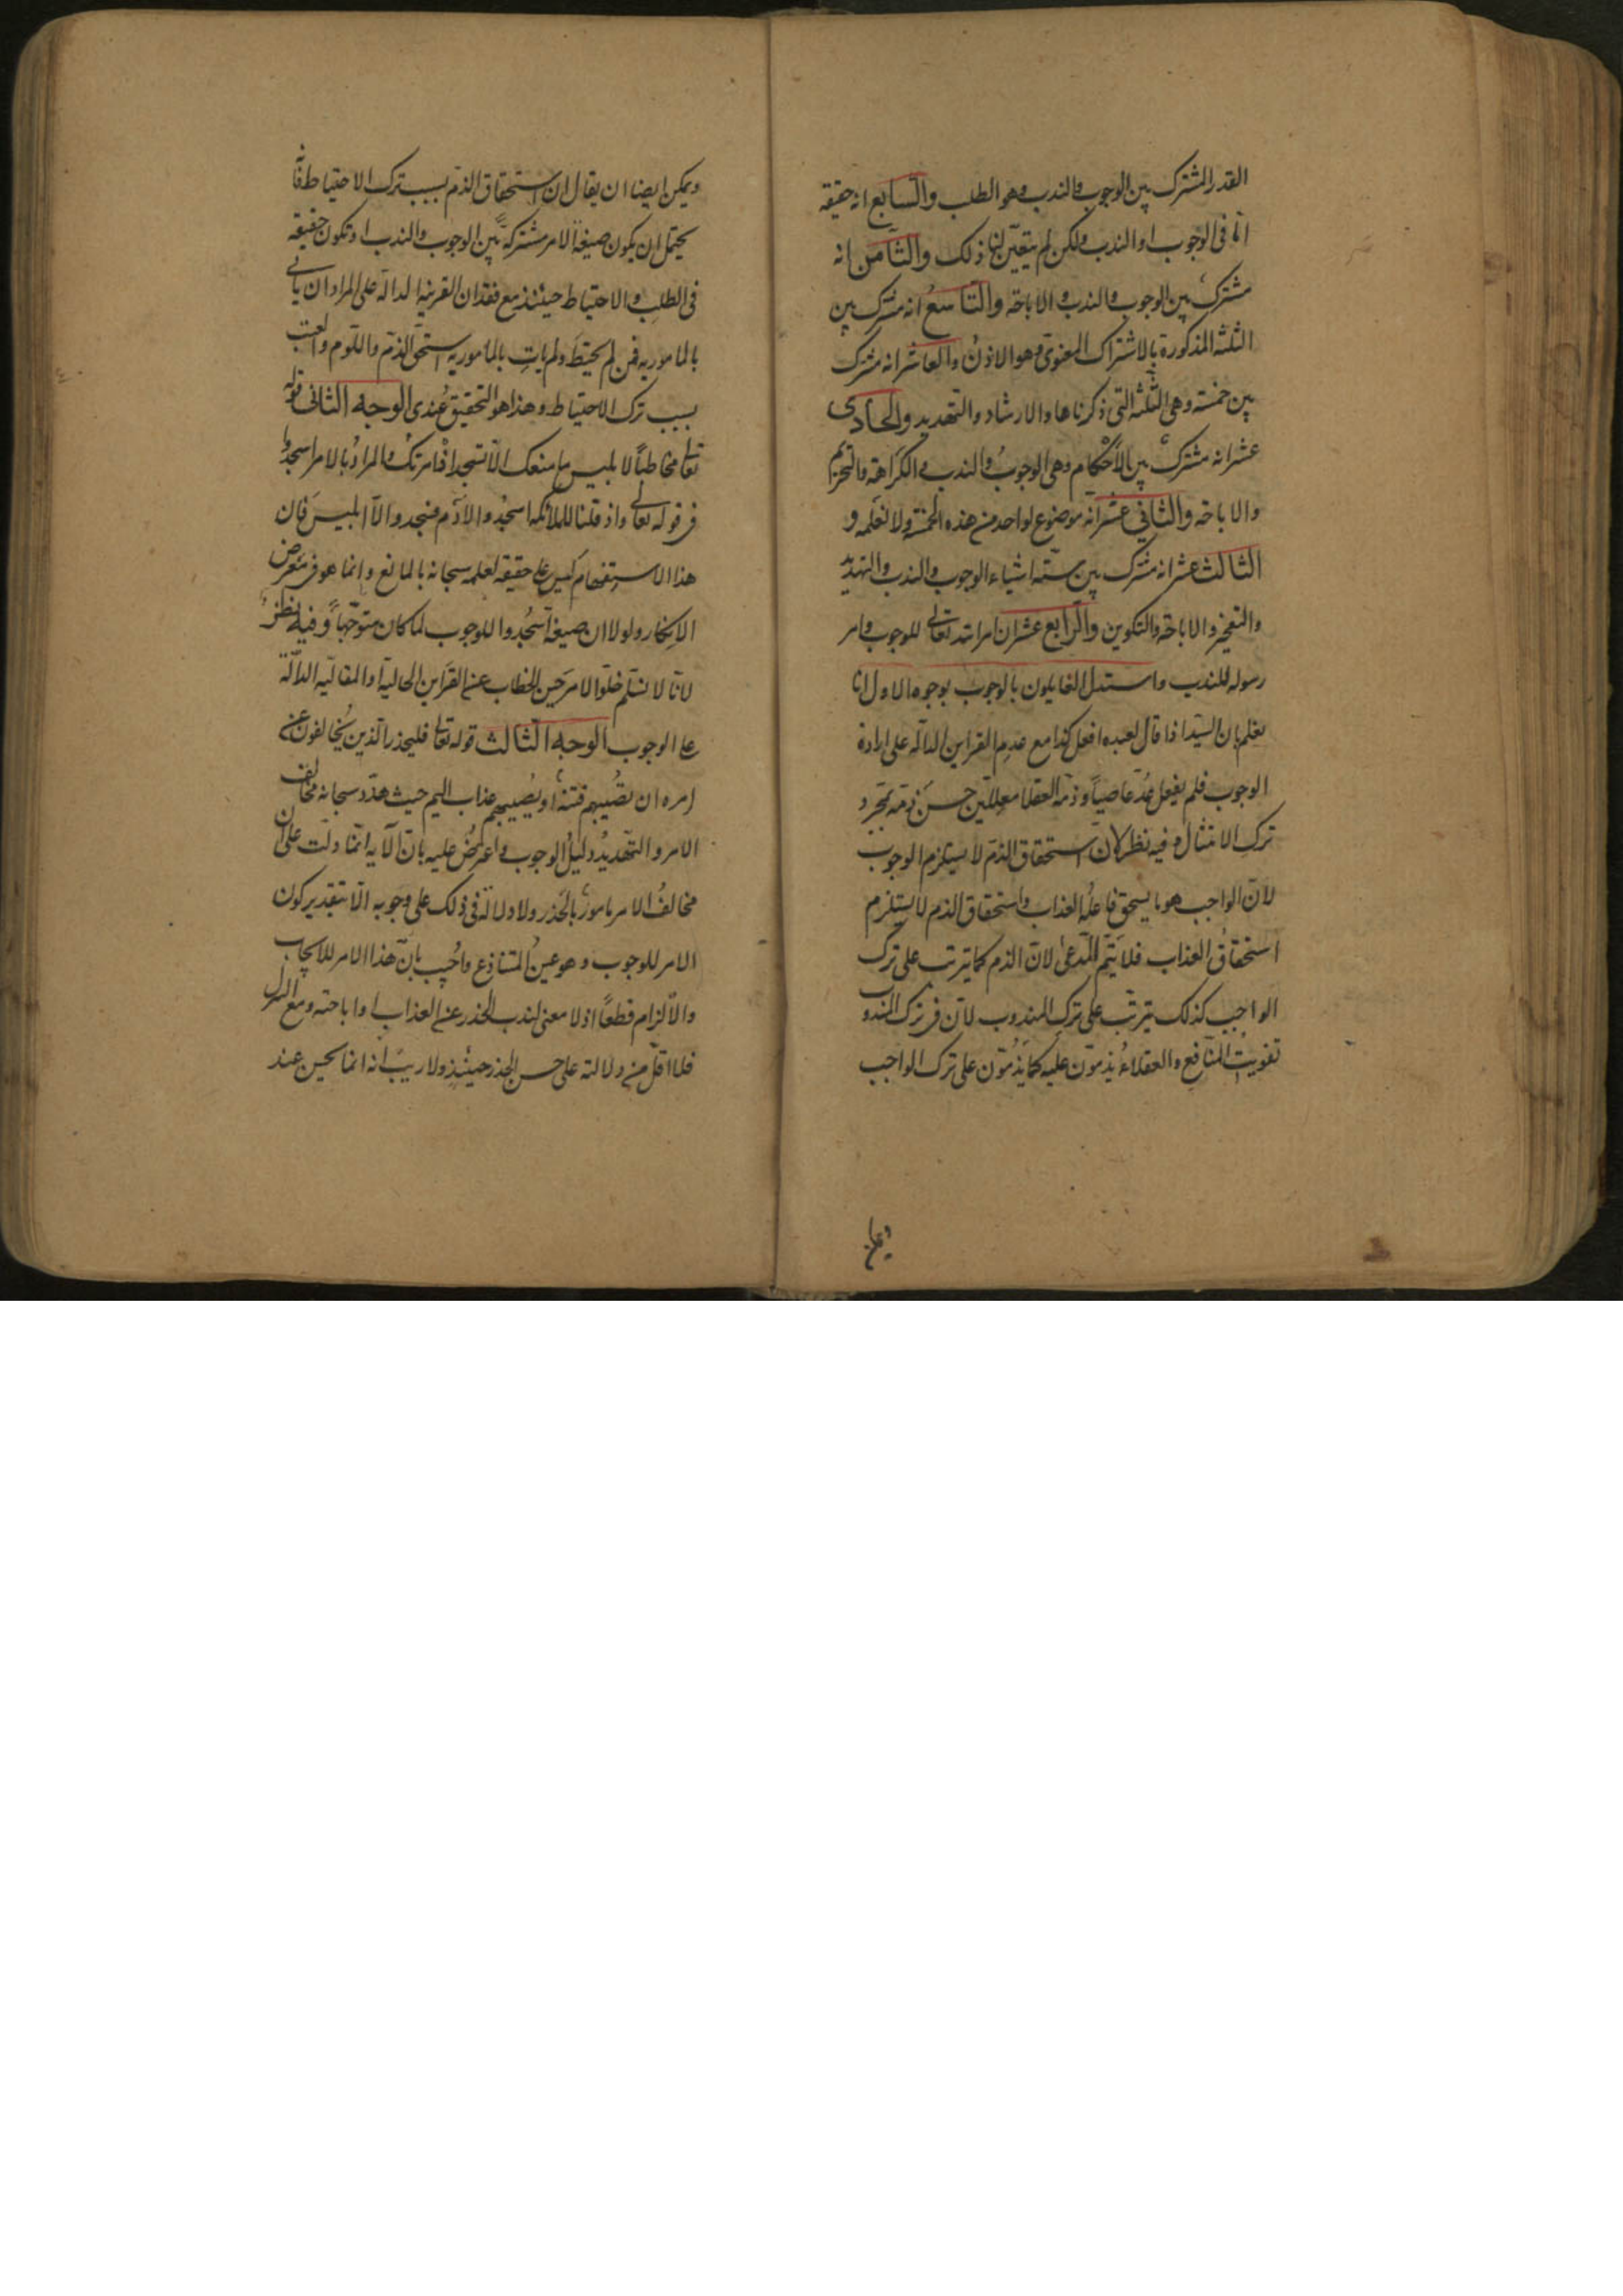 القدر المشترك بين الوجوب والندب وهو الطلب والسابع انه حقيقة
اما فى الوجوب او الندب ولكن لم يتعين لنا ذلك والثامن انه
مشترك بين الوجوب والندب والاباحة والتاسع انه مشترك بين
الثلثة المذكورة بالاشتراك المعنوى وهو الاذن والعاشر انه مشترك
بين خمسة وهى الثلثة التى ذكرناها والارشاد والتهديد والحادى
عشر انه مشترك بين الأحكام وهى الوجوب والندب والكراهة والتحريم
والاباحة والثاني عشر انه موضوع لواحد من هذه الخمسة ولا نعلمه و
الثالث عشر انه مشترك بين ستة اشياء الوجوب والندب والتهديد
والتعجيز والاباحة والتكوين والرابع عشر ان امر الله تعالى للوجوب وامر
رسوله للندب واستدل القايلون بالوجوب بوجوه الاول انا
نعلم بان السيد اذا قال لعبده افعل كذا مع عدم القراين الدالة على ارادة
الوجوب فلم يفعل عُدّ عاصياً وذمّه العقلا معللين حسن ذمّه بمجرد
ترك الامتثال وفيه نظر لان استحقاق الذم لا يستلزم الوجوب
لان الواجب هو ما يستحق فاعله العذاب واستحقاق الذم لا يستلزم
استحقاق العذاب فلا يتم المدعى لان الذم كما يترتب على ترك
الواجب كذلك يترتب على ترك المندوب لان فى ترك المندوب
تفويت المنافع والعقلاء يذمون عليه كما يذمون على ترك الواجب
ويمكن ايضا ان يقال ان استحقاق الذم بسبب ترك الاحتياط فانه
يحتمل ان يكون صيغة الامر مشتركة بين الوجوب والندب او تكون حقيقة
فى الطلب والاحتياط حينئذ مع فقدان القرينة الدالة على المراد ان يأتى
بالمامور به فمن لم يحتط ولم يات بالمامور به استحق الذم واللوم والعتب
بسبب ترك الاحتياط وهذا هو التحقيق عندى الوجه الثانى قوله
تعالى مخاطباً لابليس ما منعك الا تسجد اذ امرتك والمراد بالامر اسجدوا
فى قوله تعالى واذ قلنا للملائكة اسجدوا لادم فسجدوا الا ابليس فان
هذا الاستفهام ليس على حقيقة لعلمه سبحانه بالمانع وانما هو فى معرض
الانكار ولولا ان صيغة اسجدوا للوجوب لما كان متوجهاً وفيه نظر
لانا لا نسلم خلو الامر حين الخطاب عن القراين الحالية او المقالية الدالة
على الوجوب الوجه الثالث قوله تعالى فليحذر الذين يخالفون عن
امره ان تصيبهم فتنة او يصيبهم عذاب اليم حيث هدد سبحانه مخالف
الامر والتهديد دليل الوجوب واعترض عليه بان الآية انما دلت على ان
مخالف الامر مامور بالحذر ولا دلالة فى ذلك على وجوبه الا بتقدير كون
الامر للوجوب وهو عين المتنازع واجيب بان هذا الامر للايجاب
والالزام قطعاً اذ لا معنى لندب الحذر عن العذاب او اباحته ومع
فلا اقل من دلالته على حسن الحذر حينئذ ولا ريب انه انما يحسن عند